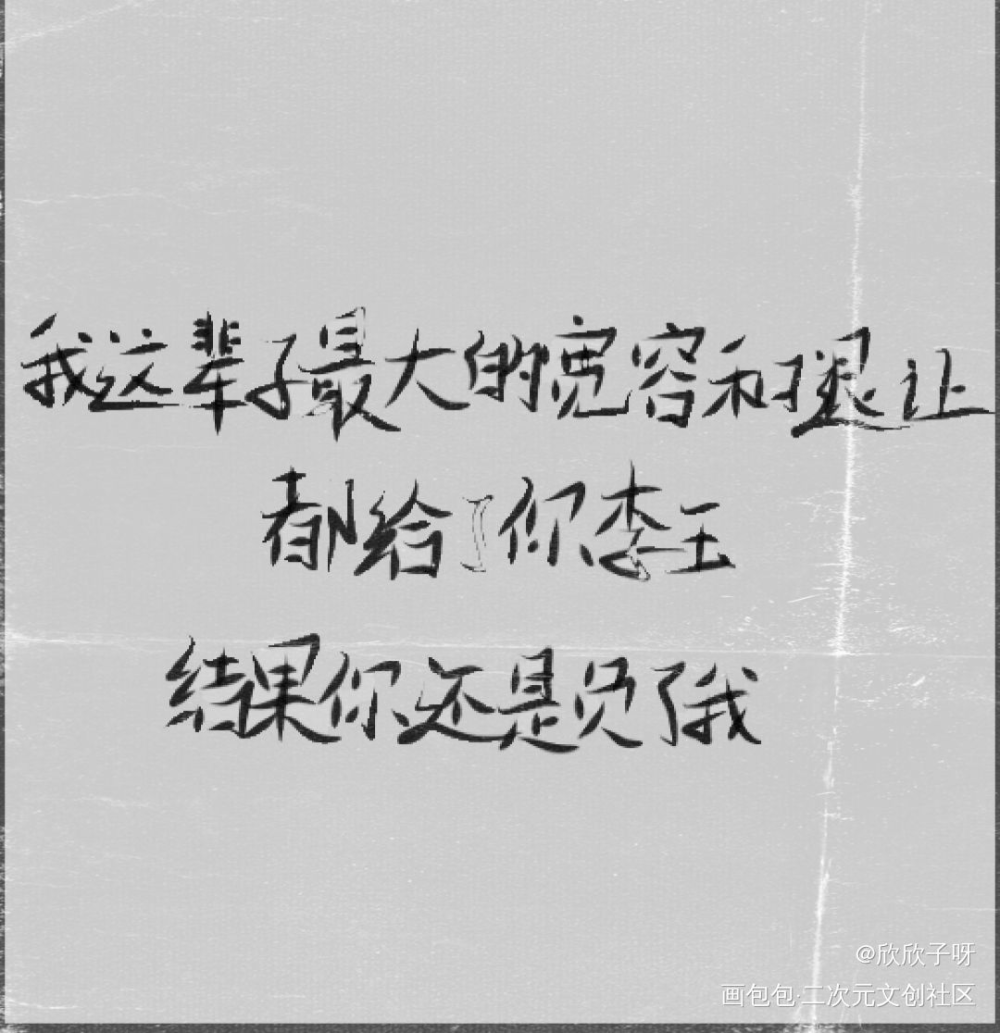 我这辈子最大的宽容和退让
都给了你李玉
结果你还是负了我
@欣欣子呀
画包包·二次元文创社区